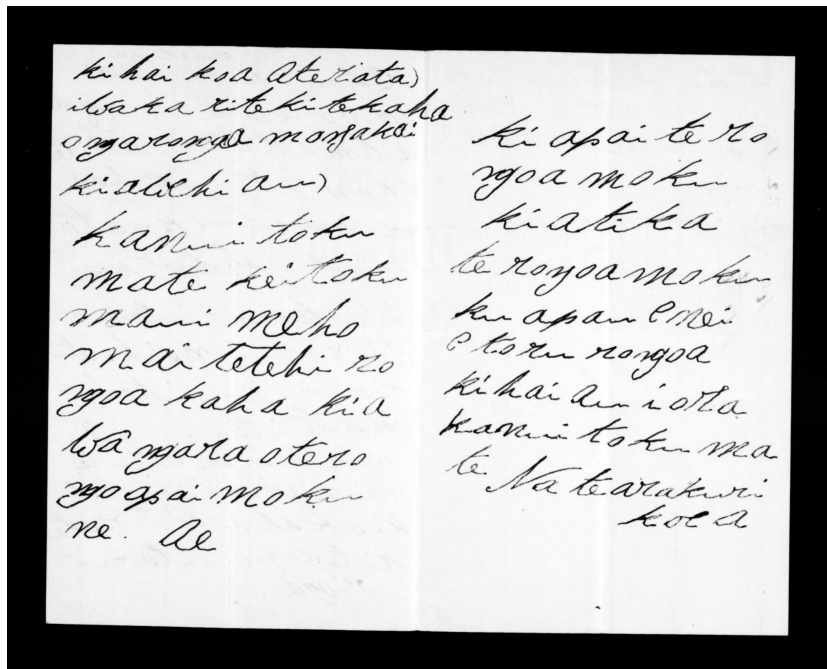 kihai koa ateriata)
iwaka rite ki te kaha
o nga rongoa
kia
ka nui toku
mate kei toku
maui meho
mai tetehi ro
ngoa kaha kia
wa ngara otero
ngoapai moku
ne. Ae
ki apai te ro
ngoa moku
kiatika
te rongoa moku
ku apau e nei
e toru rongoa
kihai au i ora
kanui toku ma
te Na te arakuri
koe a